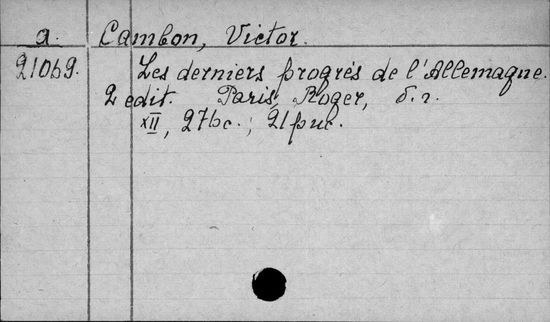 a. Cambon, Victor.
21069. Les derniers progrés de l'Allemagne.
2 edit. Paris, Roger, б.г.
XII, 276 с.; 21 рис.